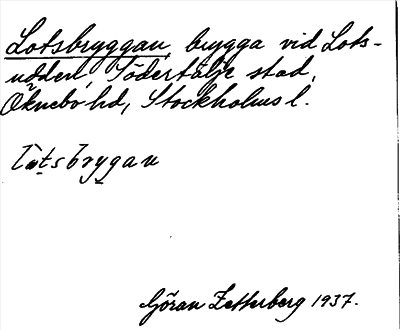 Lotsbryggan, brygga vid Lots-
udden, Södertälje stad,
Öknebo hd, Stockholms l.
Göran Zetterberg 1937.